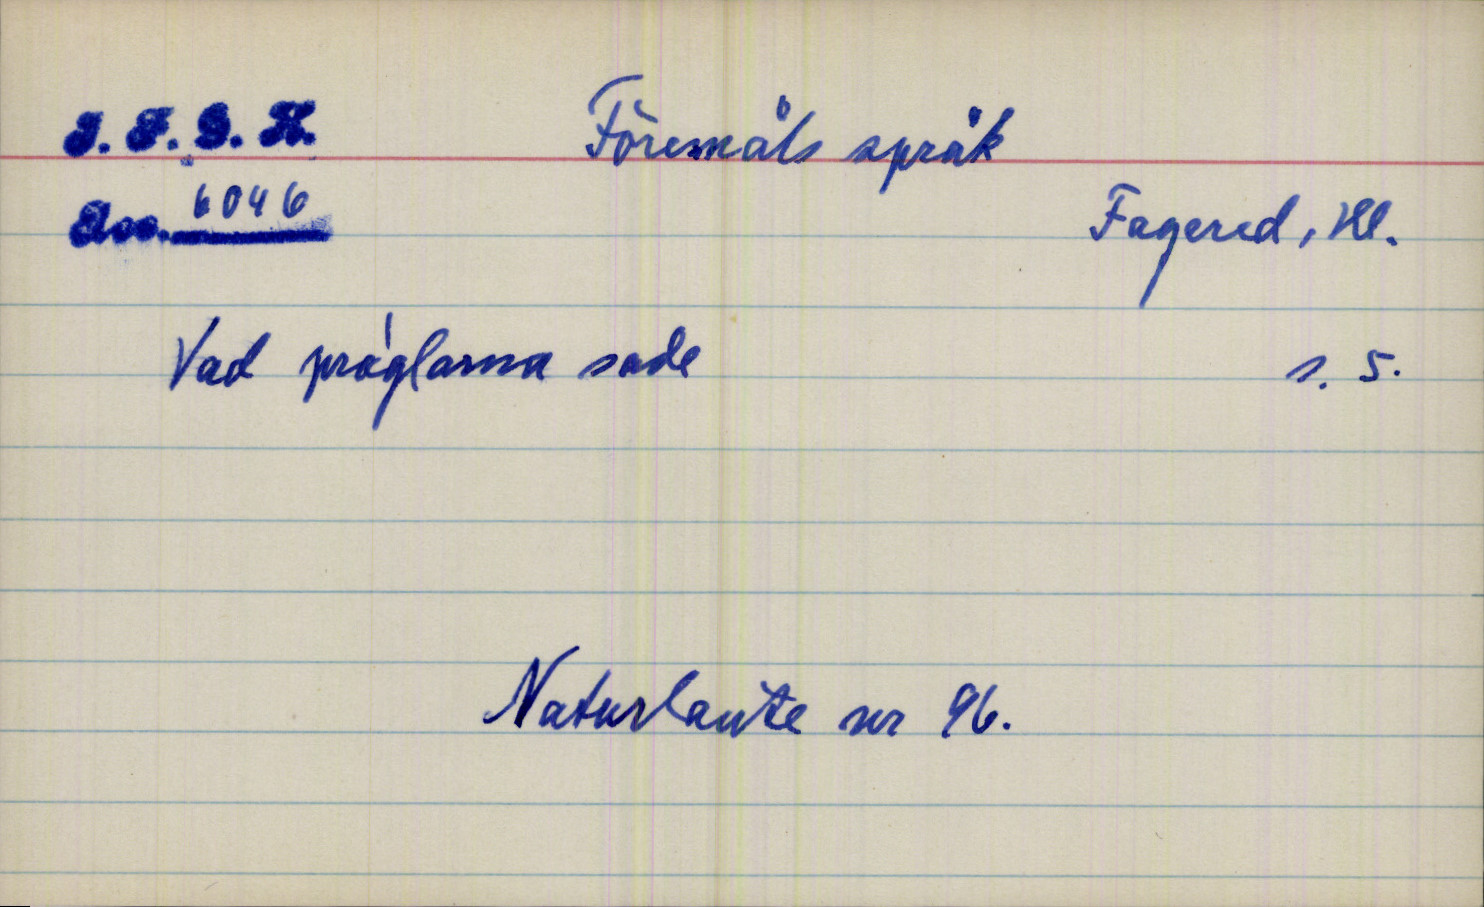 I. F. G. H.
Föremåls språk
Acc. 6046
Fagered, Hl.
Vad präglarna sade s. 5.
Naturlaute nr 96.